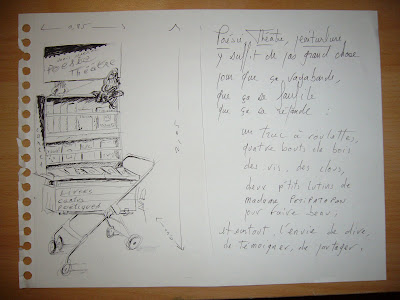 0,85
POÉSIE
Théâtre
Poésie, Théâtre, peinturlure,
y suffit de pas grand chose
pour que ça vagabonde,
que ça se faufile
que ça se répande :
un truc à roulettes,
quatre bouts de bois
des vis, des clous,
deux p'tits lutins de
madame
pour faire beau;
et surtout, l'envie de dire,
de témoigner, de partager.